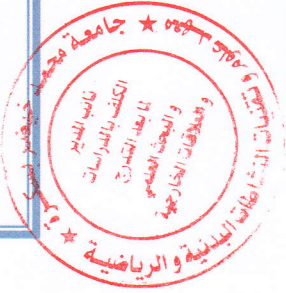 جامعة محمد خيضر بسكرة
معهد علوم و تقنيات النشاطات البدنية و الرياضية
نائب المدير
المكلف بالدراسات
لما بعد التدرج
و البحث العلمي
والعلاقات الخارجية